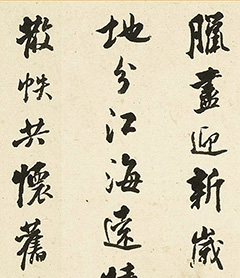 臘盡迎新歲
地分江海遠
散帙共懷舊